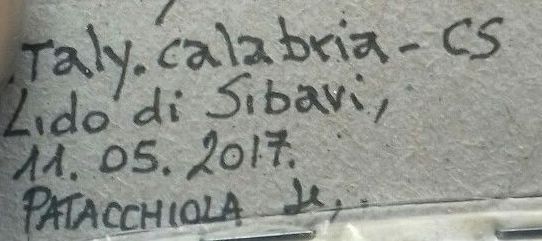 Italy. Calabria - CS
Lido di Sibari,
11. 05. 2017.
PATACCHIOLA